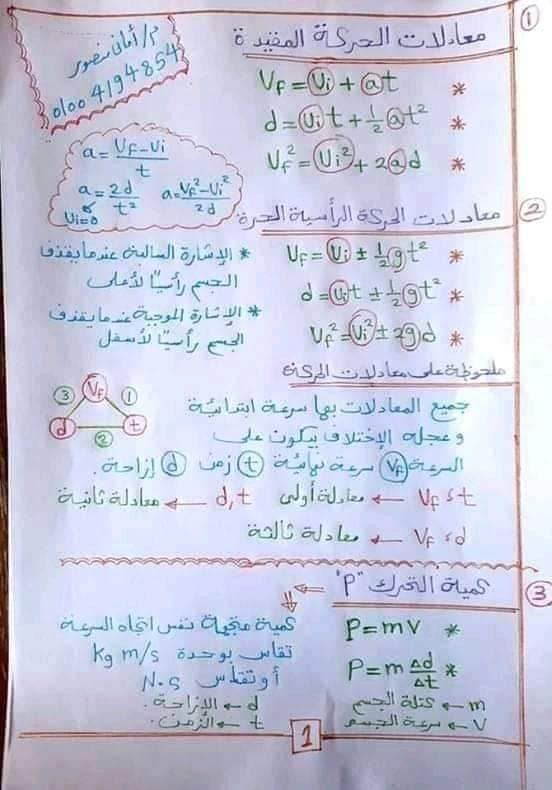 ①
معادلات الحركة المفيدة
م/أمانى منصور
01004194854
Vf = Vi + at *
d = Vi t + ½ at² *
Vf² = Vi² + 2ad *
a = (Vf - Vi)/t
a = 2d/t²
Vi = 0
a = (Vf² - Vi²)/2d
②
معادلات الحركة الرأسية الحرة
Vf = Vi ± ½gt² *
d = Vi t ± ½gt² *
Vf² = Vi² ± 2gd *
* الإشارة السالبة عندما يقذف
الجسم رأسيًا لأعلى
* الإشارة الموجبة عندما يقذف
الجسم رأسيًا لأسفل
ملحوظة على معادلات الحركة
Vf
③ ①
d t
②
جميع المعادلات بها سرعة ابتدائية
وعجلة الإختلاف بيكون على
السرعة Vf سرعة نهائية t زمن d إزاحة.
Vf ، t ← معادلة أولى
d, t ← معادلة ثانية
Vf ، d ← معادلة ثالثة
③
كمية التحرك "P"
P = mv *
P = m Δd/Δt *
كمية متجهة نفس اتجاه السرعة
تقاس بوحدة kg m/s
أو تقاس N.s
m ← كتلة الجسم
V ← سرعة الجسم
d ← الإزاحة.
t ← الزمن.
1